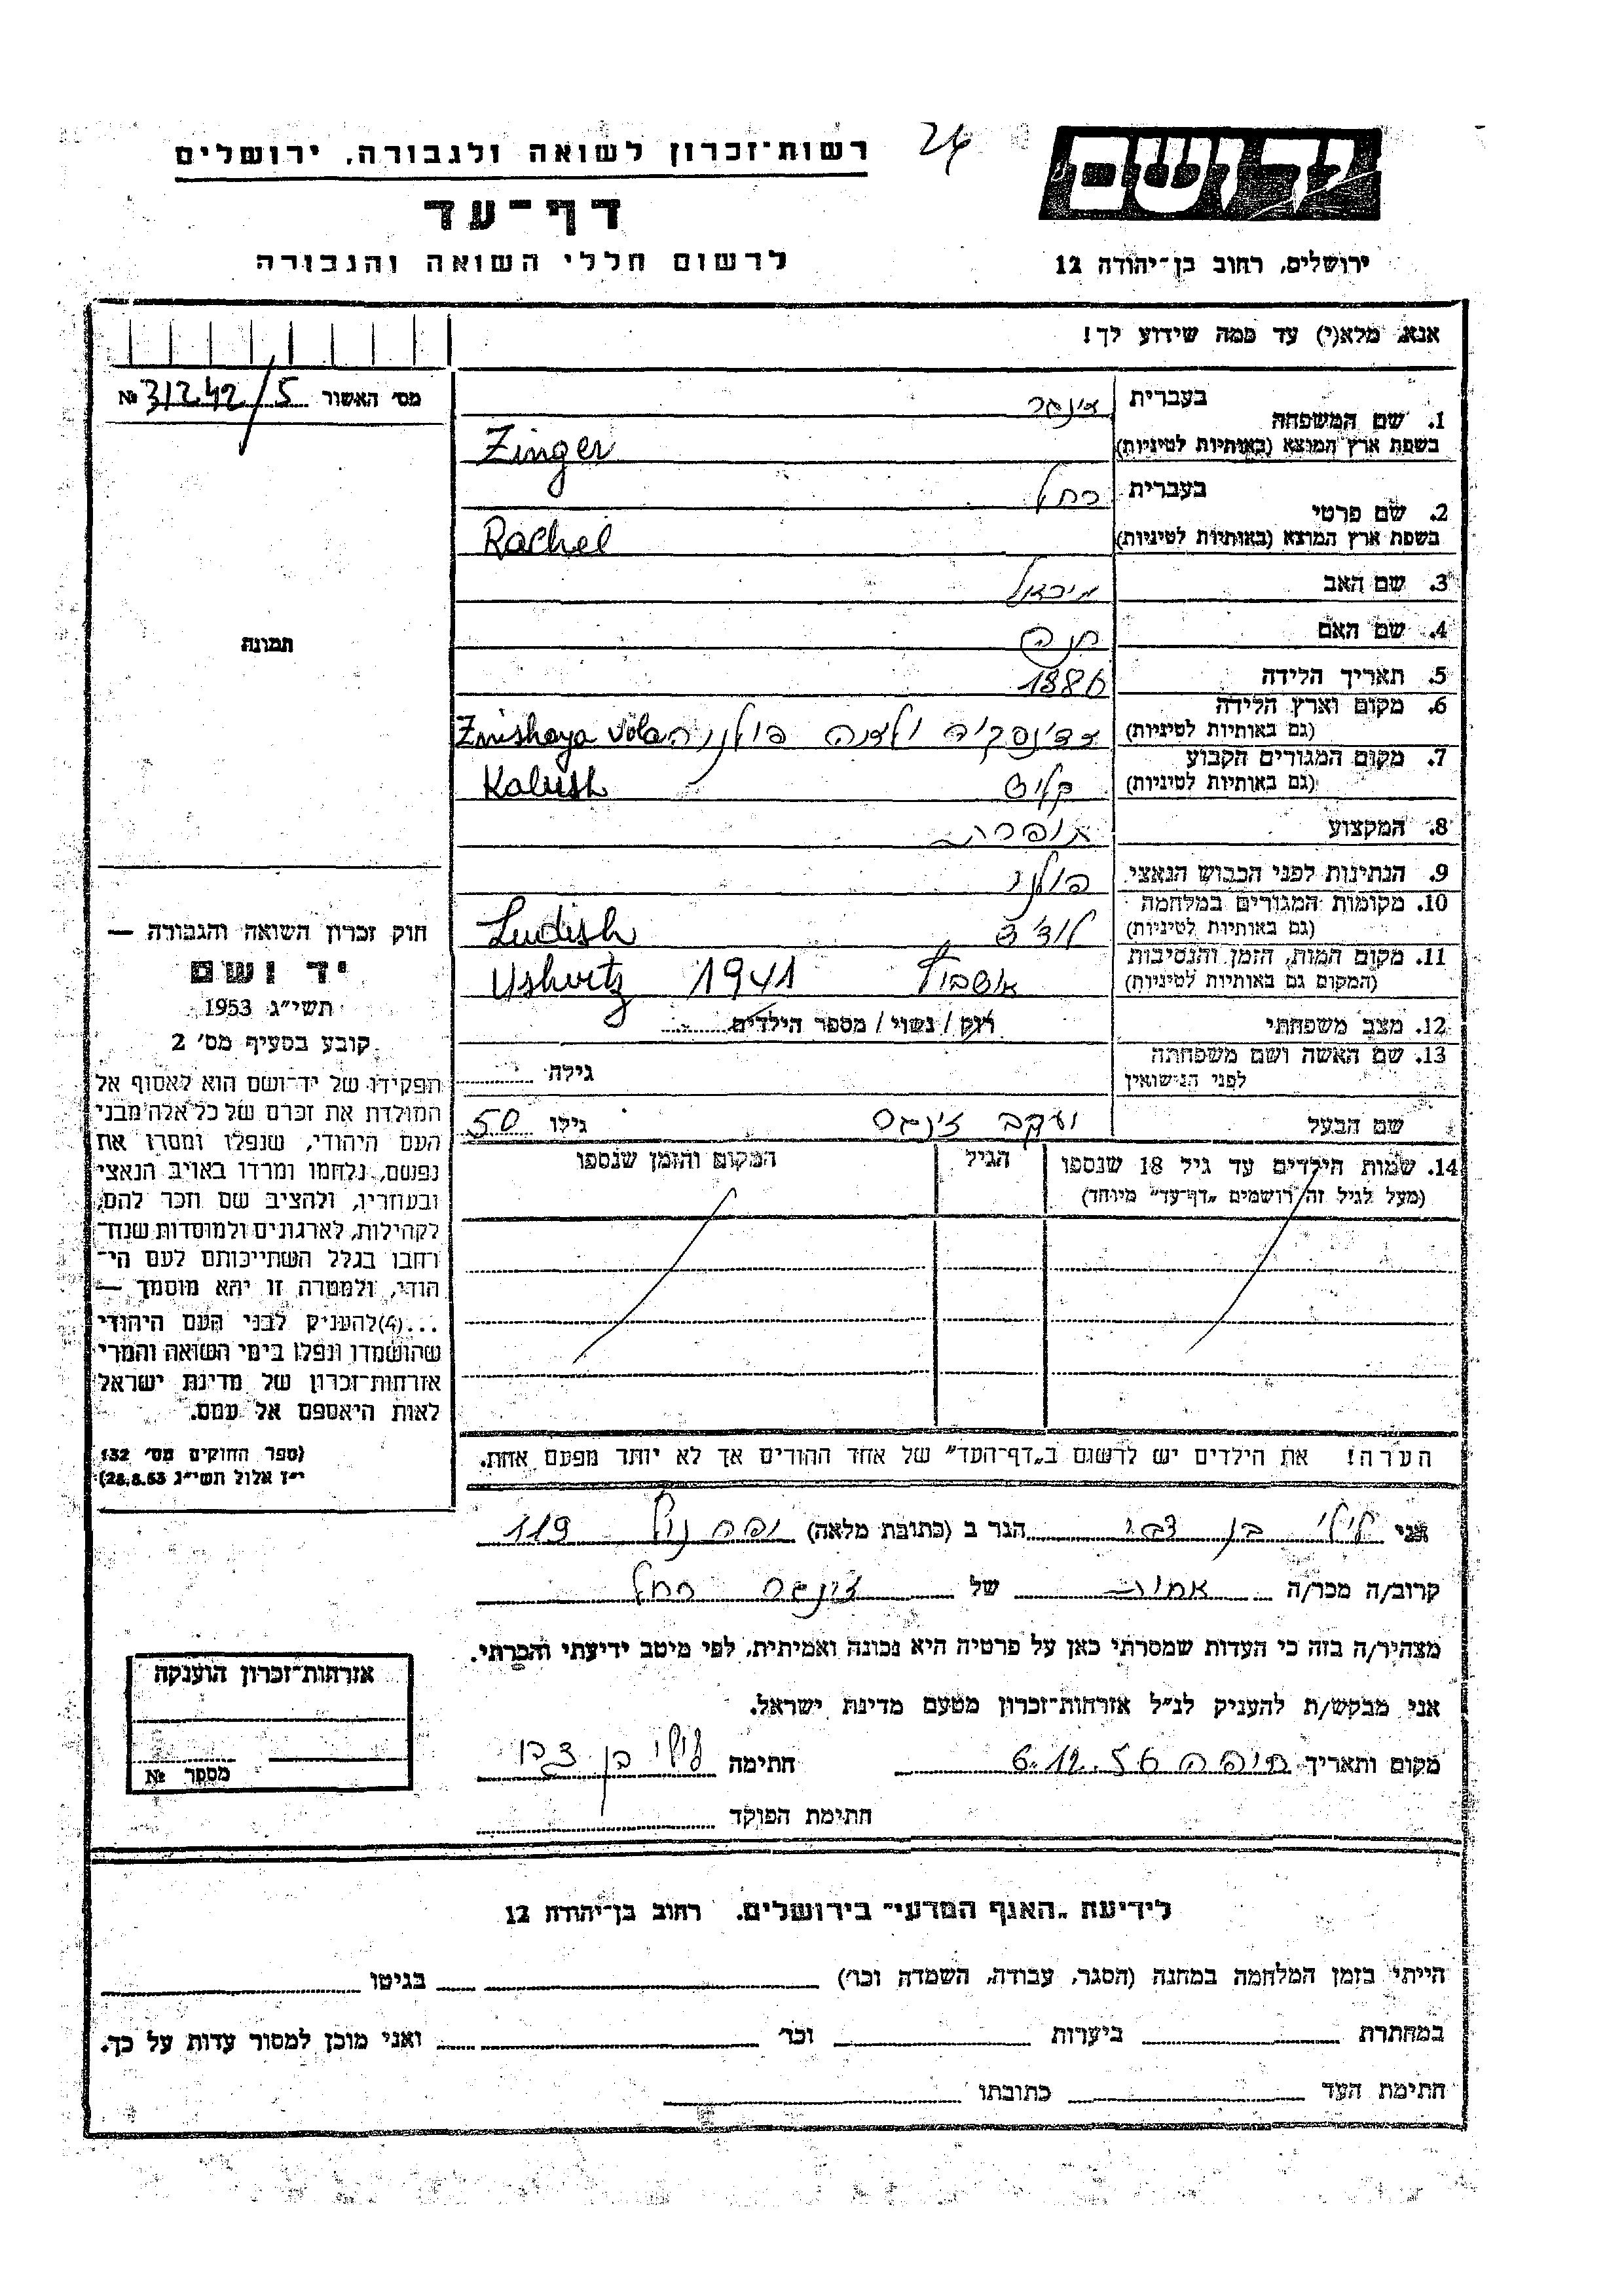 24
יד ושם
רשות־זכרון לשואה ולגבורה, ירושלים
דף־עד
לרשום חללי השואה והגבורה
ירושלים, רחוב בן־יהודה 12
אנא, מלא(י) עד כמה שידוע לך!
מס' האשור 31242/5 №
תמונה
1. שם המשפחה בעברית זינגר
בשפת ארץ המוצא (באותיות לטיניות) Zinger
2. שם פרטי בעברית רחל
בשפת ארץ המוצא (באותיות לטיניות) Rachel
3. שם האב מיכאל
4. שם האם חנה
5. תאריך הלידה 1886
6. מקום וארץ הלידה
(גם באותיות לטיניות) וולה פולניה Vola
7. מקום המגורים הקבוע
(גם באותיות לטיניות) קליש Kalish
8. המקצוע תופרת
9. הנתינות לפני הכבוש הנאצי. פולני
10. מקומות המגורים במלחמה
(גם באותיות לטיניות) לודז' Ludish
11. מקום המות, הזמן והנסיבות
(המקום גם באותיות לטיניות) 1941 Ushvitz
12. מצב משפחתי רוק / נשוי / מספר הילדים
13. שם האשה ושם משפחתה
לפני הנישואין גילה
שם הבעל יעקב זינגר גילו 50
14. שמות הילדים עד גיל 18 שנספו
(מעל לגיל זה רושמים „דף־עד" מיוחד)
הגיל
המקום והזמן שנספו
הערה! את הילדים יש לרשום ב„דף־העד" של אחד ההורים אך לא יותר מפעם אחת.
חוק זכרון השואה והגבורה —
יד ושם
תשי"ג 1953
קובע בסעיף מס' 2
תפקידו של יד־ושם הוא לאסוף אל
המולדת את זכרם של כל אלה מבני
העם היהודי, שנפלו ומסרו את
נפשם, נלחמו ומרדו באויב הנאצי
ובעוזריו, ולהציב שם וזכר להם,
לקהילות, לארגונים ולמוסדות שנח־
רבו בגלל השתייכותם לעם הי־
הודי, ולמטרה זו יהא מוסמך —
...(4) להעניק לבני העם היהודי
שהושמדו ונפלו בימי השואה והמרי
אזרחות־זכרון של מדינת ישראל
לאות היאספם אל עמם.
(ספר החוקים מס' 132
י"ז אלול תשי"ג 28.8.53)
אני לילי בן צבי הגר ב (כתובת מלאה) 119
קרוב/ה מכר/ה אחות של זינגר רחל
מצהיר/ה בזה כי העדות שמסרתי כאן על פרטיה היא נכונה ואמיתית, לפי מיטב ידיעתי והכרתי.
אני מבקש/ת להעניק לנ"ל אזרחות־זכרון מטעם מדינת ישראל.
מקום ותאריך חיפה 6.12.56 חתימה לילי בן צבי
חתימת הפוקד
אזרחות־זכרון הוענקה
מספר №
לידיעת „האגף המדעי" בירושלים, רחוב בן־יהודה 12
הייתי בזמן המלחמה במחנה (הסגר, עבודה, השמדה וכו') בגיטו
במחתרת ביערות וכו' ואני מוכן למסור עדות על כך.
חתימת העד כתובתו